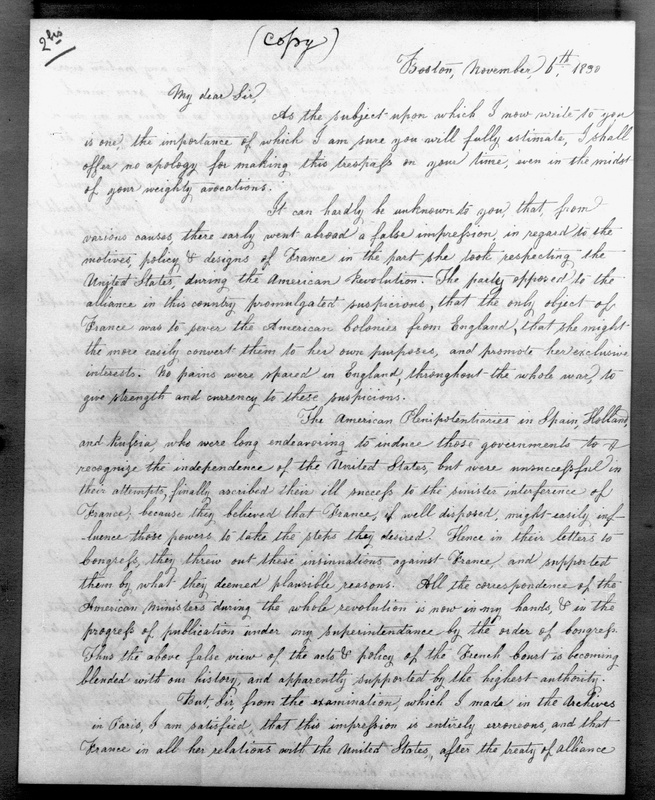 2 bis
(Copy)
Boston, November, 6th, 1830
My dear Sir,
As the subject upon which I now write to you
is one, the importance of which I am sure you will fully estimate, I shall
offer no apology for making this trespass on your time, even in the midst
of your weighty avocations.
It can hardly be unknown to you, that, from
various causes, there early went abroad a false impression, in regard to the
motives, policy, & designs of France in the part she took respecting the
United States, during the American Revolution. The party opposed to the
alliance in this country promulgated suspicions, that the only object of
France was to sever the American Colonies from England, that she might
the more easily convert them to her own purposes, and promote her exclusive
interests. No pains were spared in England, throughout the whole war, to
give strength and currency to these suspicions.
The American Plenipotentiaries in Spain, Holland,
and Russia, who were long endeavoring to induce those governments to
recognize the independence of the United States, but were unsuccessful in
their attempts, finally ascribed their ill success to the sinister interference of
France, because they believed that France, if well disposed, might easily inf-
luence those powers to take the steps they desired. Hence in their letters to
Congress, they threw out these insinuations against France, and supported
them by what they deemed plausible reasons. All the correspondence of the
American Ministers during the whole revolution is now in my hands, & in the
progress of publication under my superintendance by the order of Congress.
Thus the above false view of the acts & policy of the French Court is becoming
blended with our history, and apparently supported by the highest authority.
But, Sir, from the examination, which I made in the Archives
in Paris, I am satisfied, that this impression is entirely erroneous, and that
France in all her relations with the United States, after the treaty of alliance